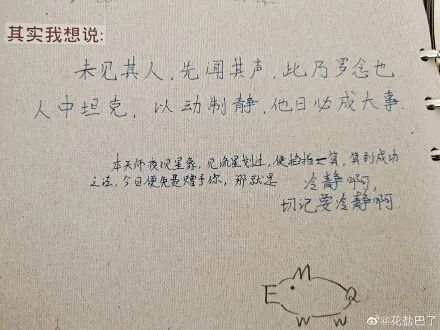 其实我想说:
未见其人,先闻其声,此乃罗念也
人中坦克,以动制静,他日必成大事.
本天师夜观星象,见流星划过,便掐指一算,算到成功
之法,今日便免费赠予你,那就是 冷静啊,
切记要冷静啊
@花盐巴了